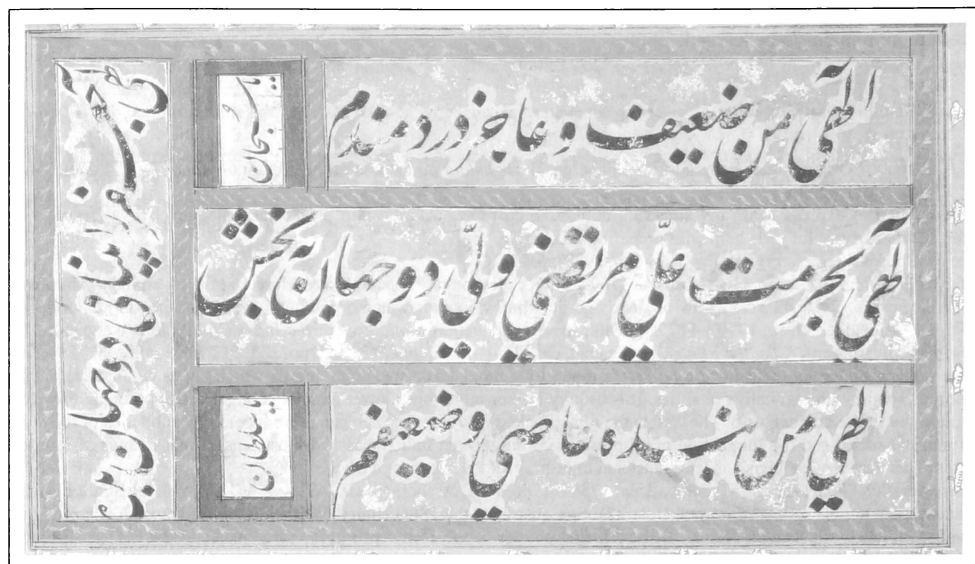 الهی من ضعیف و عاجز و دردمندم
یا سبحان
الهی بحرمت علیّ مرتضی ولیّ دو جهان به بخش
الهی من بنده عاصی و ضعیفم
یا سلطان
مرا بینایی دو جهان